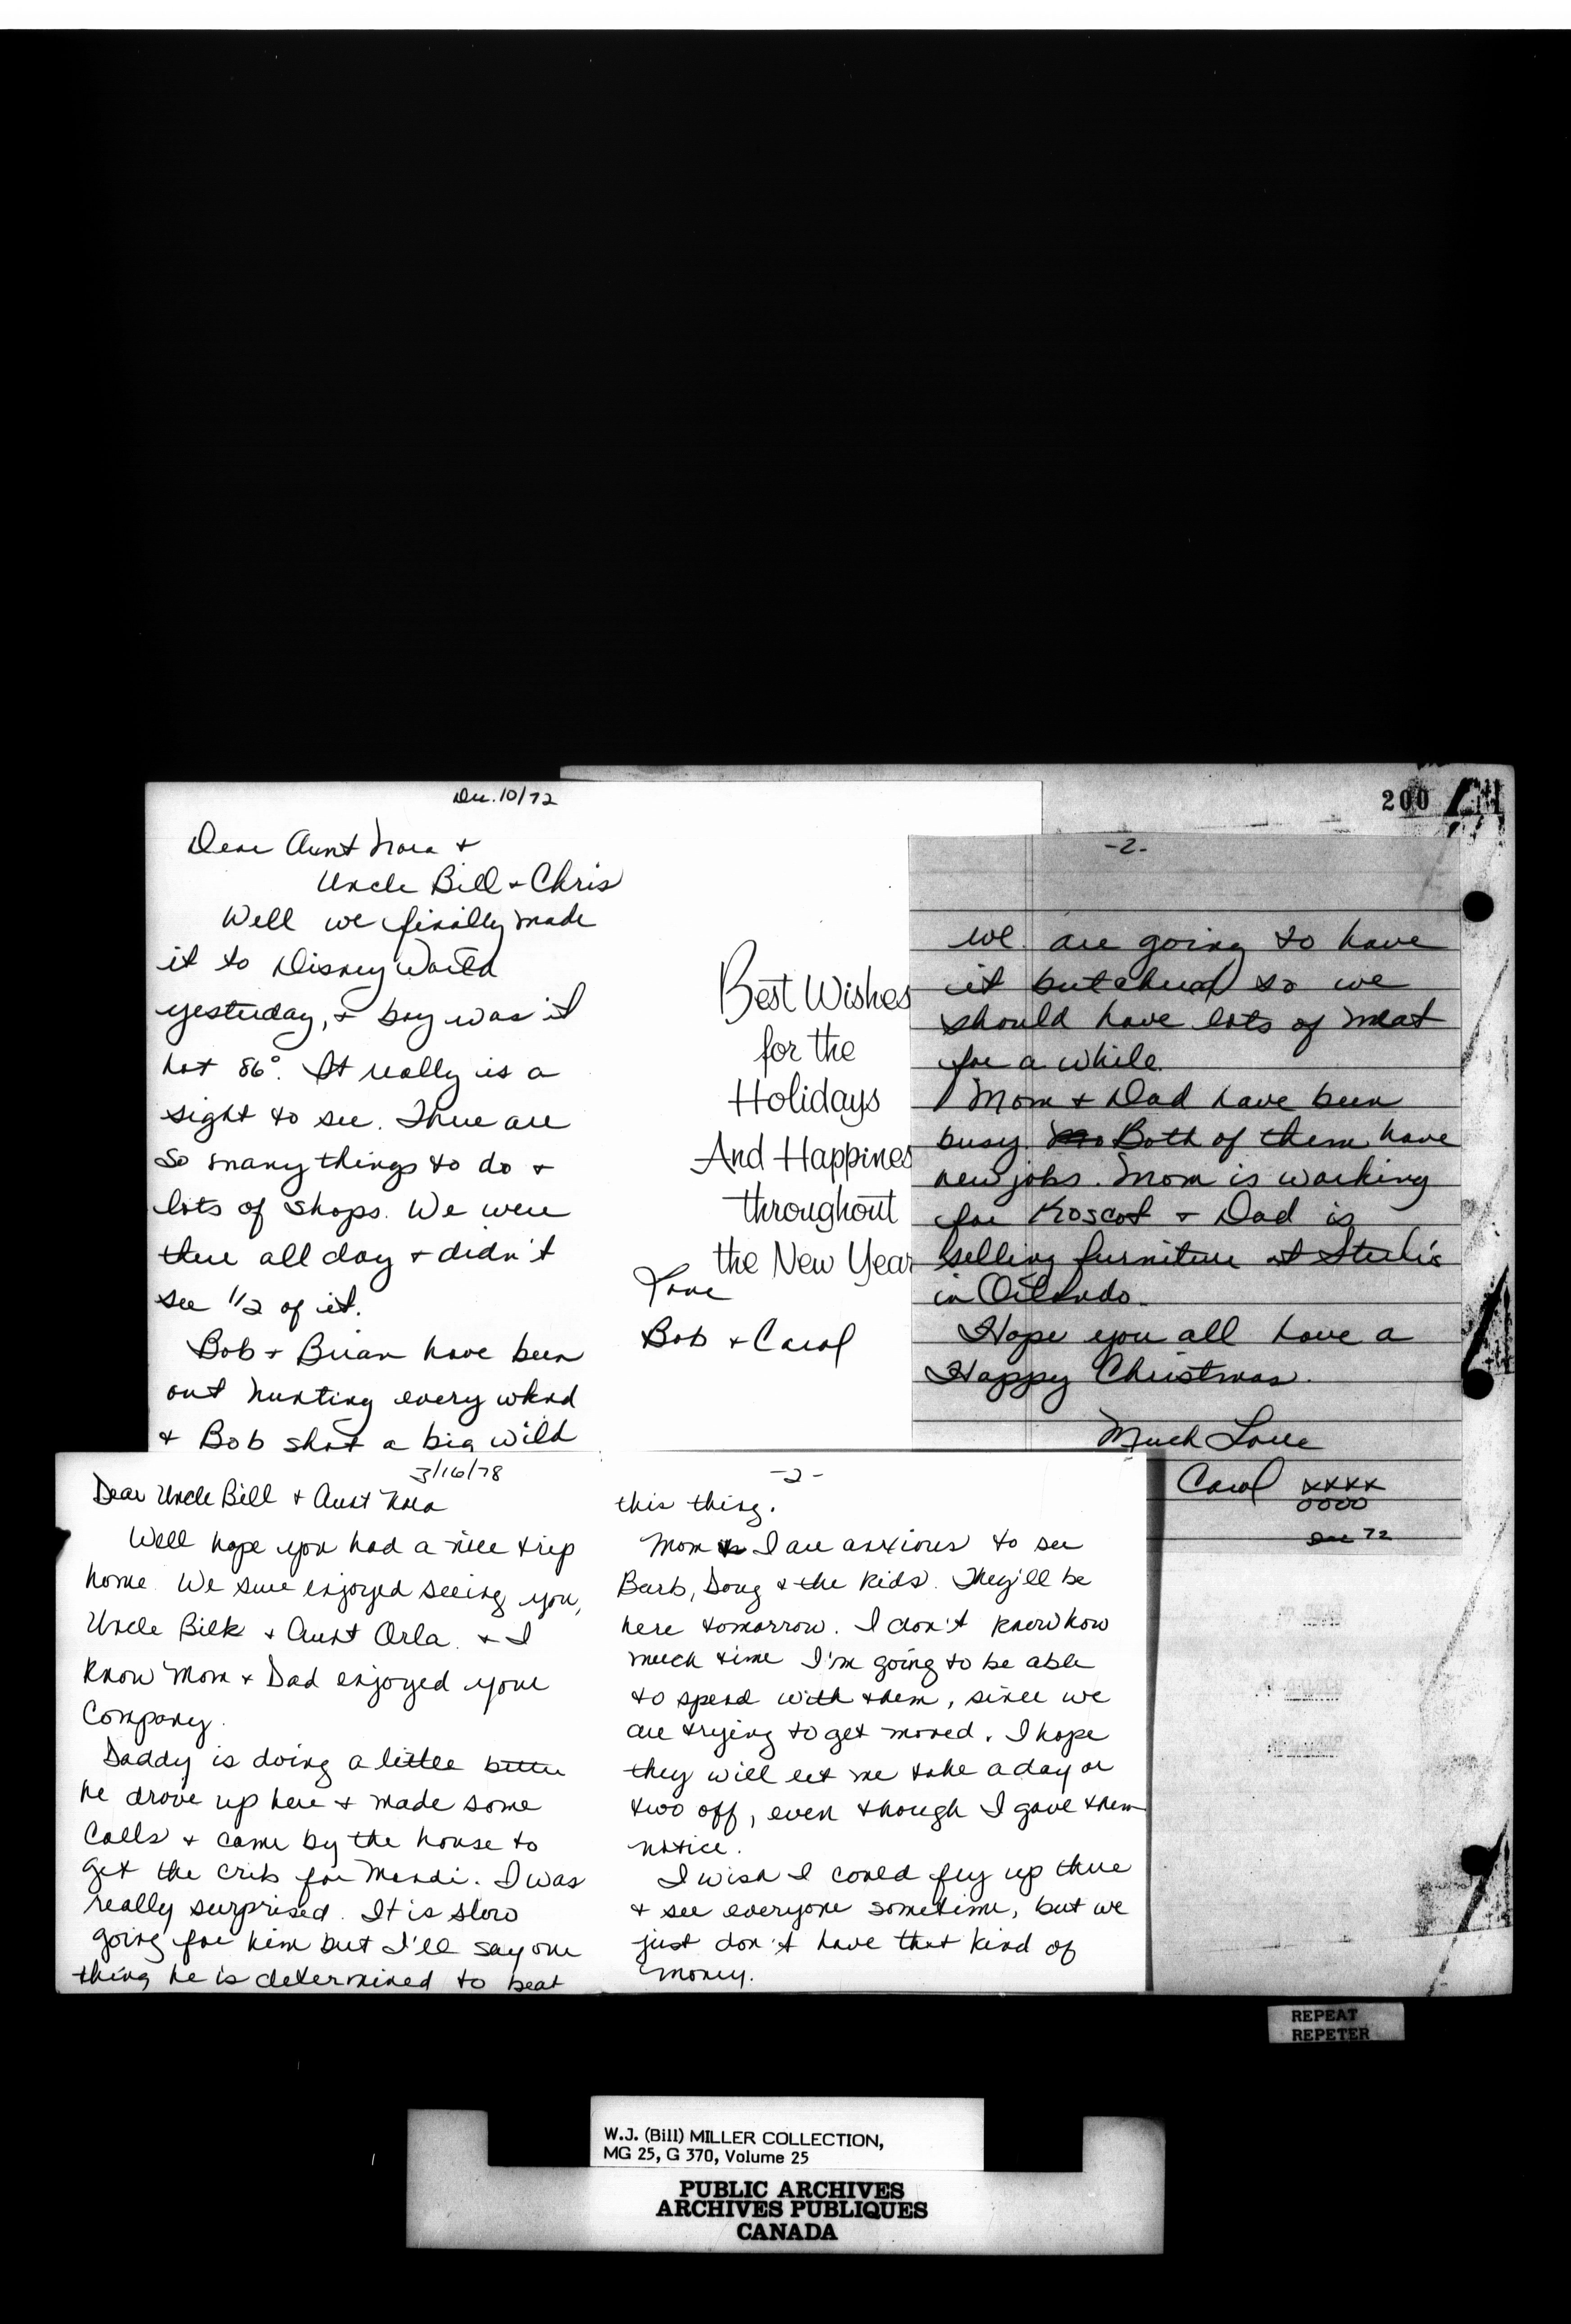 200
Dec. 10/72
Dear Aunt Nora +
Uncle Bill + Chris
Well we finally made
it to Disney World
yesterday, + boy was it
hot 86°. It really is a
sight to see. There are
so many things to do +
lots of shops. We were
there all day + didn't
see 1/2 of it.
Bob + Brian have been
out hunting every wknd
+ Bob shot a big wild
Best Wishes
for the
Holidays
And Happines
throughout
the New Year
Love
Bob + Carol
-2-
we are going to have
it butchered so we
should have lots of meat
for a while.
Mom + Dad have been
busy. Both of them have
new jobs. Mom is working
for Koscot + Dad is
selling furniture at
in Orlando.
Hope you all have a
Happy Christmas.
Much Love
Carol xxxx
oooo
Dec 72
3/16/78
Dear Uncle Bill + Aunt Nora
Well hope you had a nice trip
home. We sure enjoyed seeing you,
Uncle Bilk + Aunt Orla. + I
know Mom + Dad enjoyed your
Company.
Daddy is doing a little better
he drove up here + made some
calls + came by the house to
get the crib for Mandi. I was
really surprised. It is slow
going for him but I'll say one
thing he is determined to beat
-2-
this thing.
Mom I are anxious to see
Barb, Doug & the kids. They'll be
here tomorrow. I don't know how
much time I'm going to be able
to spend with them, since we
are trying to get moved. I hope
they will let me take a day or
two off, even though I gave them
notice.
I wish I could fly up there
+ see everyone sometime, but we
just don't have that kind of
money.
REPEAT
REPETER
W.J. (Bill) MILLER COLLECTION,
MG 25, G 370, Volume 25
PUBLIC ARCHIVES
ARCHIVES PUBLIQUES
CANADA